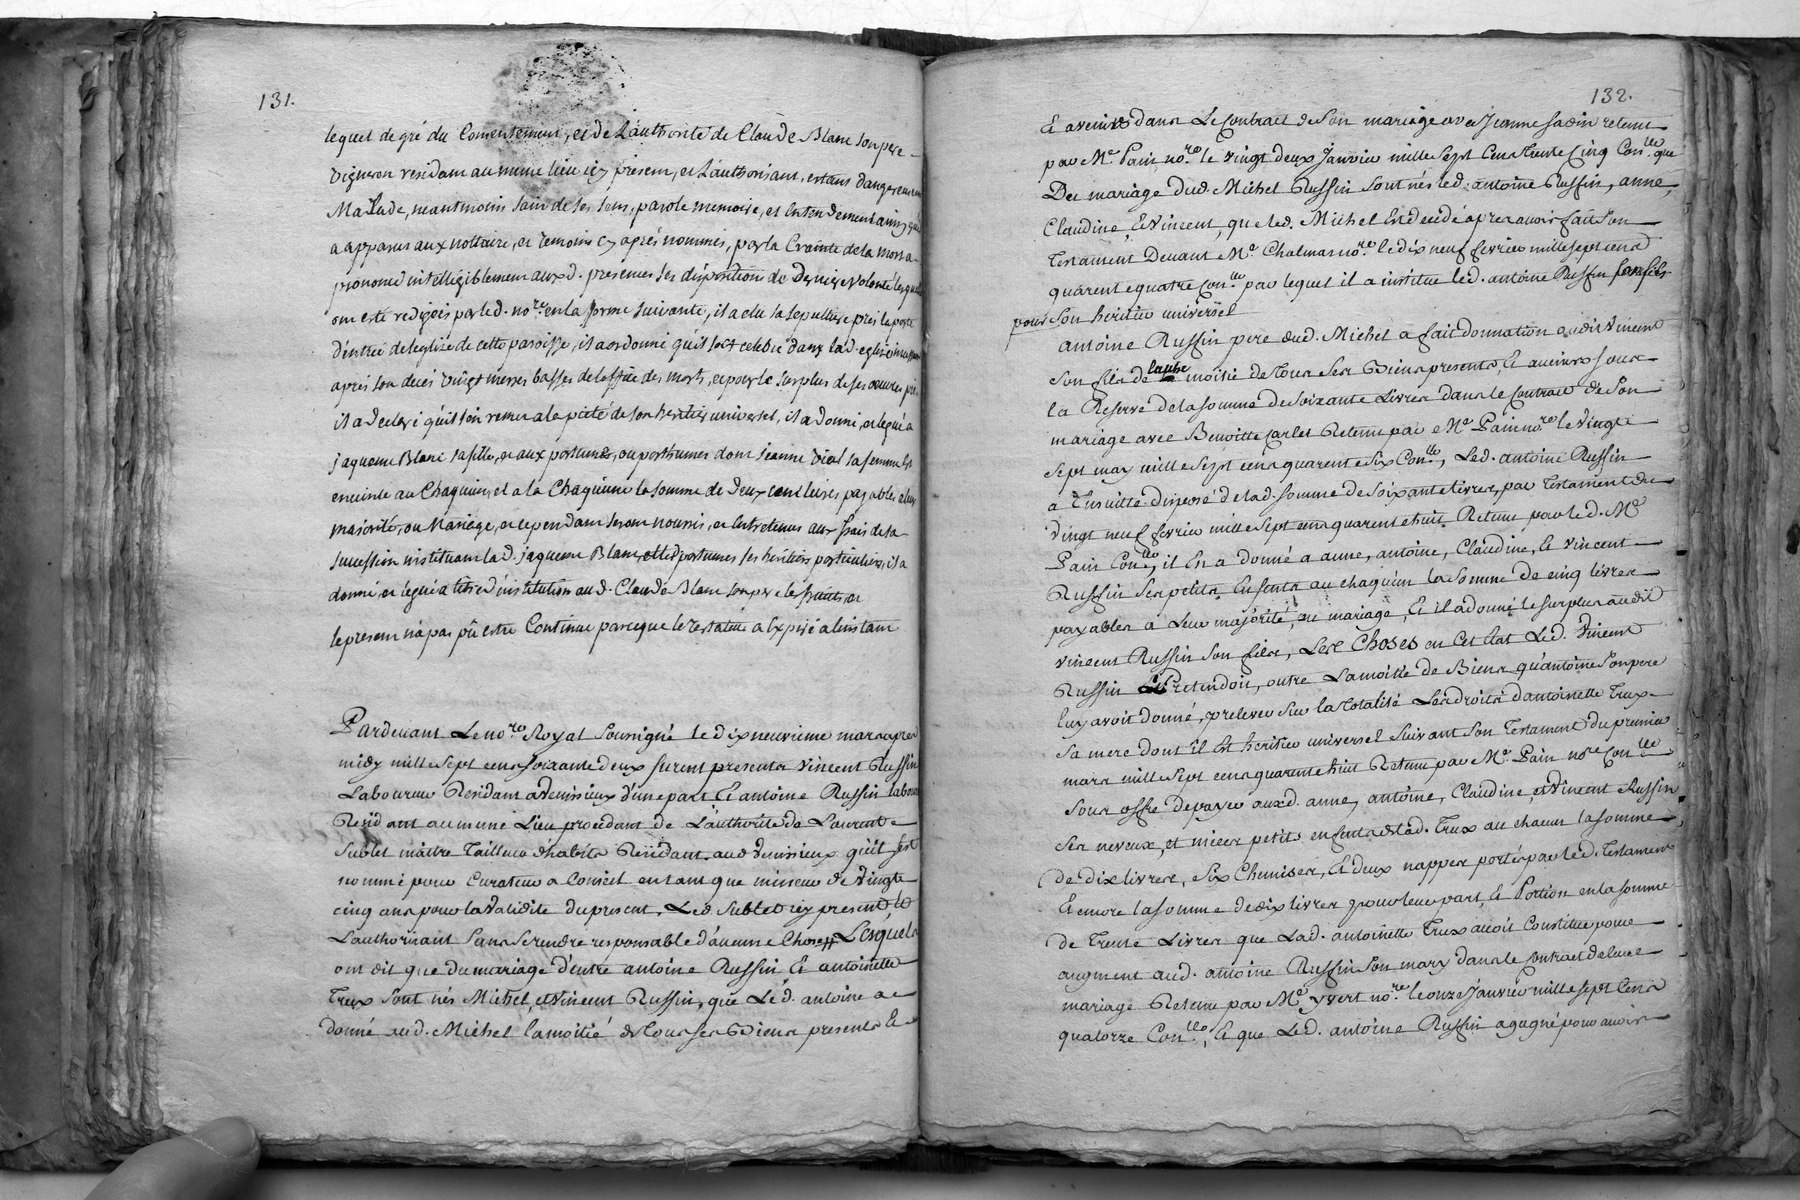 131.
lequel de gré du Consentement, et de L'authorité de Claude Blanc son pere
Vigneron residant au meme lieu icy present, et L'authorisant, estant dangereusement
Malade, neantmoins sain de ses sens, parole memoire, et Entendement ainsy qu'il
a apparus aux nottaire, et temoins cy aprés nommés, par la Crainte de la mort a
prononcé intelligiblement auxd. presences ses dispositions de Derniere Volonté lesquelles
ont esté redigées par led. no.re en la forme suivante, il a elu sa sepulture prés la porte
d'entrée de leglize de cette paroisse, il a ordonné qu'il soit celebré dans lad. eglize
aprés son decés Vingt messes basses de loffice des morts, et pour le surplus de ses œuvres pies
il a declaré qu'il s'en remet a la pieté de son heritier universel, il a donné, et legué a
jaqueme Blanc sa fille, et aux postumes, ou posthumes dont Jeanne Vial sa femme est
enceinte au Chaquun, et a la Chaquune la somme de Deux cent livres payables a leur
majorité, ou Mariage, et cependant seront nourris, et Entretenus aux frais de sa
succession instituant lad. jaqueme Blanc, et led. postumes ses heritiers particuliers, il a
donné, et legué a titre d'institution aud. Claude Blanc son pere les fruits, et
le present n'a pas pû estre Continué parceque le Testateur a Expiré a linstant
Pardevant Le no.re Royal Soussigné le dix neuvieme mars apres
midy mille sept cens soixante deux furent presents Vincent Russin
Laboureur Residant a Venissieux d'une part Et antoine Russin labour
Residant au meme Lieu procedant de L'authorité de Laurent
Sublet maitre Tailleur d'habits Residant aud. Venissieux qu'il est
nommé pour Curateur a Conseil en tant que mineur de Vingt
cinq ans pour la Validité du present, Led. Sublet icy present et
L'authorisant sans se rendre responsable d'aucune Chose, Lesquels
ont dit que du mariage d'entre antoine Russin Et antoinette
Trux sont nés Michel, et Vincent Russin, que Led. antoine a
donné aud. Michel la moitié de Tous ses Biens presents Et
132.
Et avenirs dans Le Contrat de Son mariage avec Jeanne Sadin retenu
par M.e Pain no.re le Vingt deux Janvier mille sept Cens trente Cinq Con.lle que
Du mariage dud. Michel Russin sont nés led. antoine Russin, anne,
Claudine, Et Vincent, que led. Michel Est decedé apres avoir fait Son
Testament Devant M.e Chalmas no.re le dix neuf fevrier mille sept cens
quarente quatre Con.lle par lequel il a institue led. antoine Russin son fils
pour Son heritier universel
antoine Russin pere dud. Michel a fait donnation audit Vincent
son fils de l'autre moitié de Tous ses Biens presents, Et avenirs sous
la Reserve de la somme de soixante Livres dans le Contract de Son
mariage avec Benoitte Carles Retenu par M.e Pain no.re le Vingt
sept may mille sept cens quarente six Con.lle, Led. antoine Russin
a Ensuitte disposé de lad. somme de soixante livres, par Testament du
Vingt neuf fevrier mille sept cens quarent et huit Retenu par led. M.e
Pain Con.lle, il En a donné a anne, antoine, Claudine, Et Vincent
Russin ses petits Enfants au chaquun la Somme de cinq livres
payables a Leur majorité, ou mariage, Et il a donné le surplus audit
Vincent Russin son fils, Les Choses en Cet Etat Led. Vincent
Russin Pretendoit, outre La moitié de Biens qu'antoine son pere
luy avoit donné, prelever sur la Totalité Les droits d'antoinette Trux
sa mere dont il Est heritier universel suivant son Testament du premier
mars mille sept cens quarente huit Retenu par M.e Pain no.re Con.lle
sous offre de payer auxd. anne, antoine, Claudine, et Vincent Russin
ses neveux, et nieces petits enfants de lad. Trux au chacun la somme
de dix livres, six Chemises, Et deux nappes portés par led. Testament
Et encore la somme de dix livres pour leur part, Et Portion en la somme
de Trente Livres que Lad. antoinette Trux avoit Constitué pour
augment aud. antoine Russin son mary dans le Contract de leur
mariage Retenu par M.e yvert no.re le onze Janvier mille sept Cens
quatorze Con.lle, Et que Led. antoine Russin a gagné pour avoir